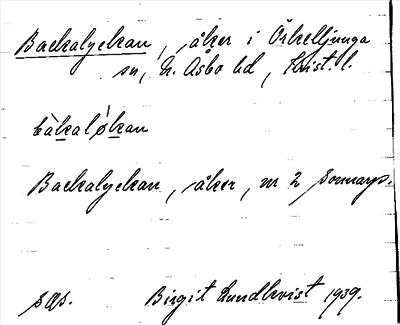 Backalyckan, åker i Örkelljunga
sn, N. Åsbo hd, Krist. l.
bàkalýkan
Backalyckan, åker, nr 2 Sonnarp.
Birgit Lundkvist 1939.